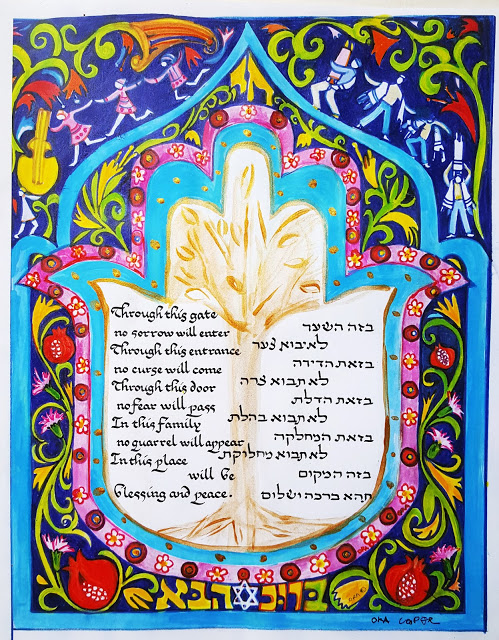 Through this gate
no sorrow will enter
Through this entrance
no curse will come
Through this door
no fear will pass
In this family
no quarrel will appear
In this place
will be
blessing and peace.
בזה השער
לא יבוא צער
בזאת הדירה
לא תבוא צרה
בזאת הדלת
לא תבוא בהלת
בזאת המחלקה
לא תבוא מחלוקת
בזה המקום
תהא ברכה ושלום
ברוך הבא